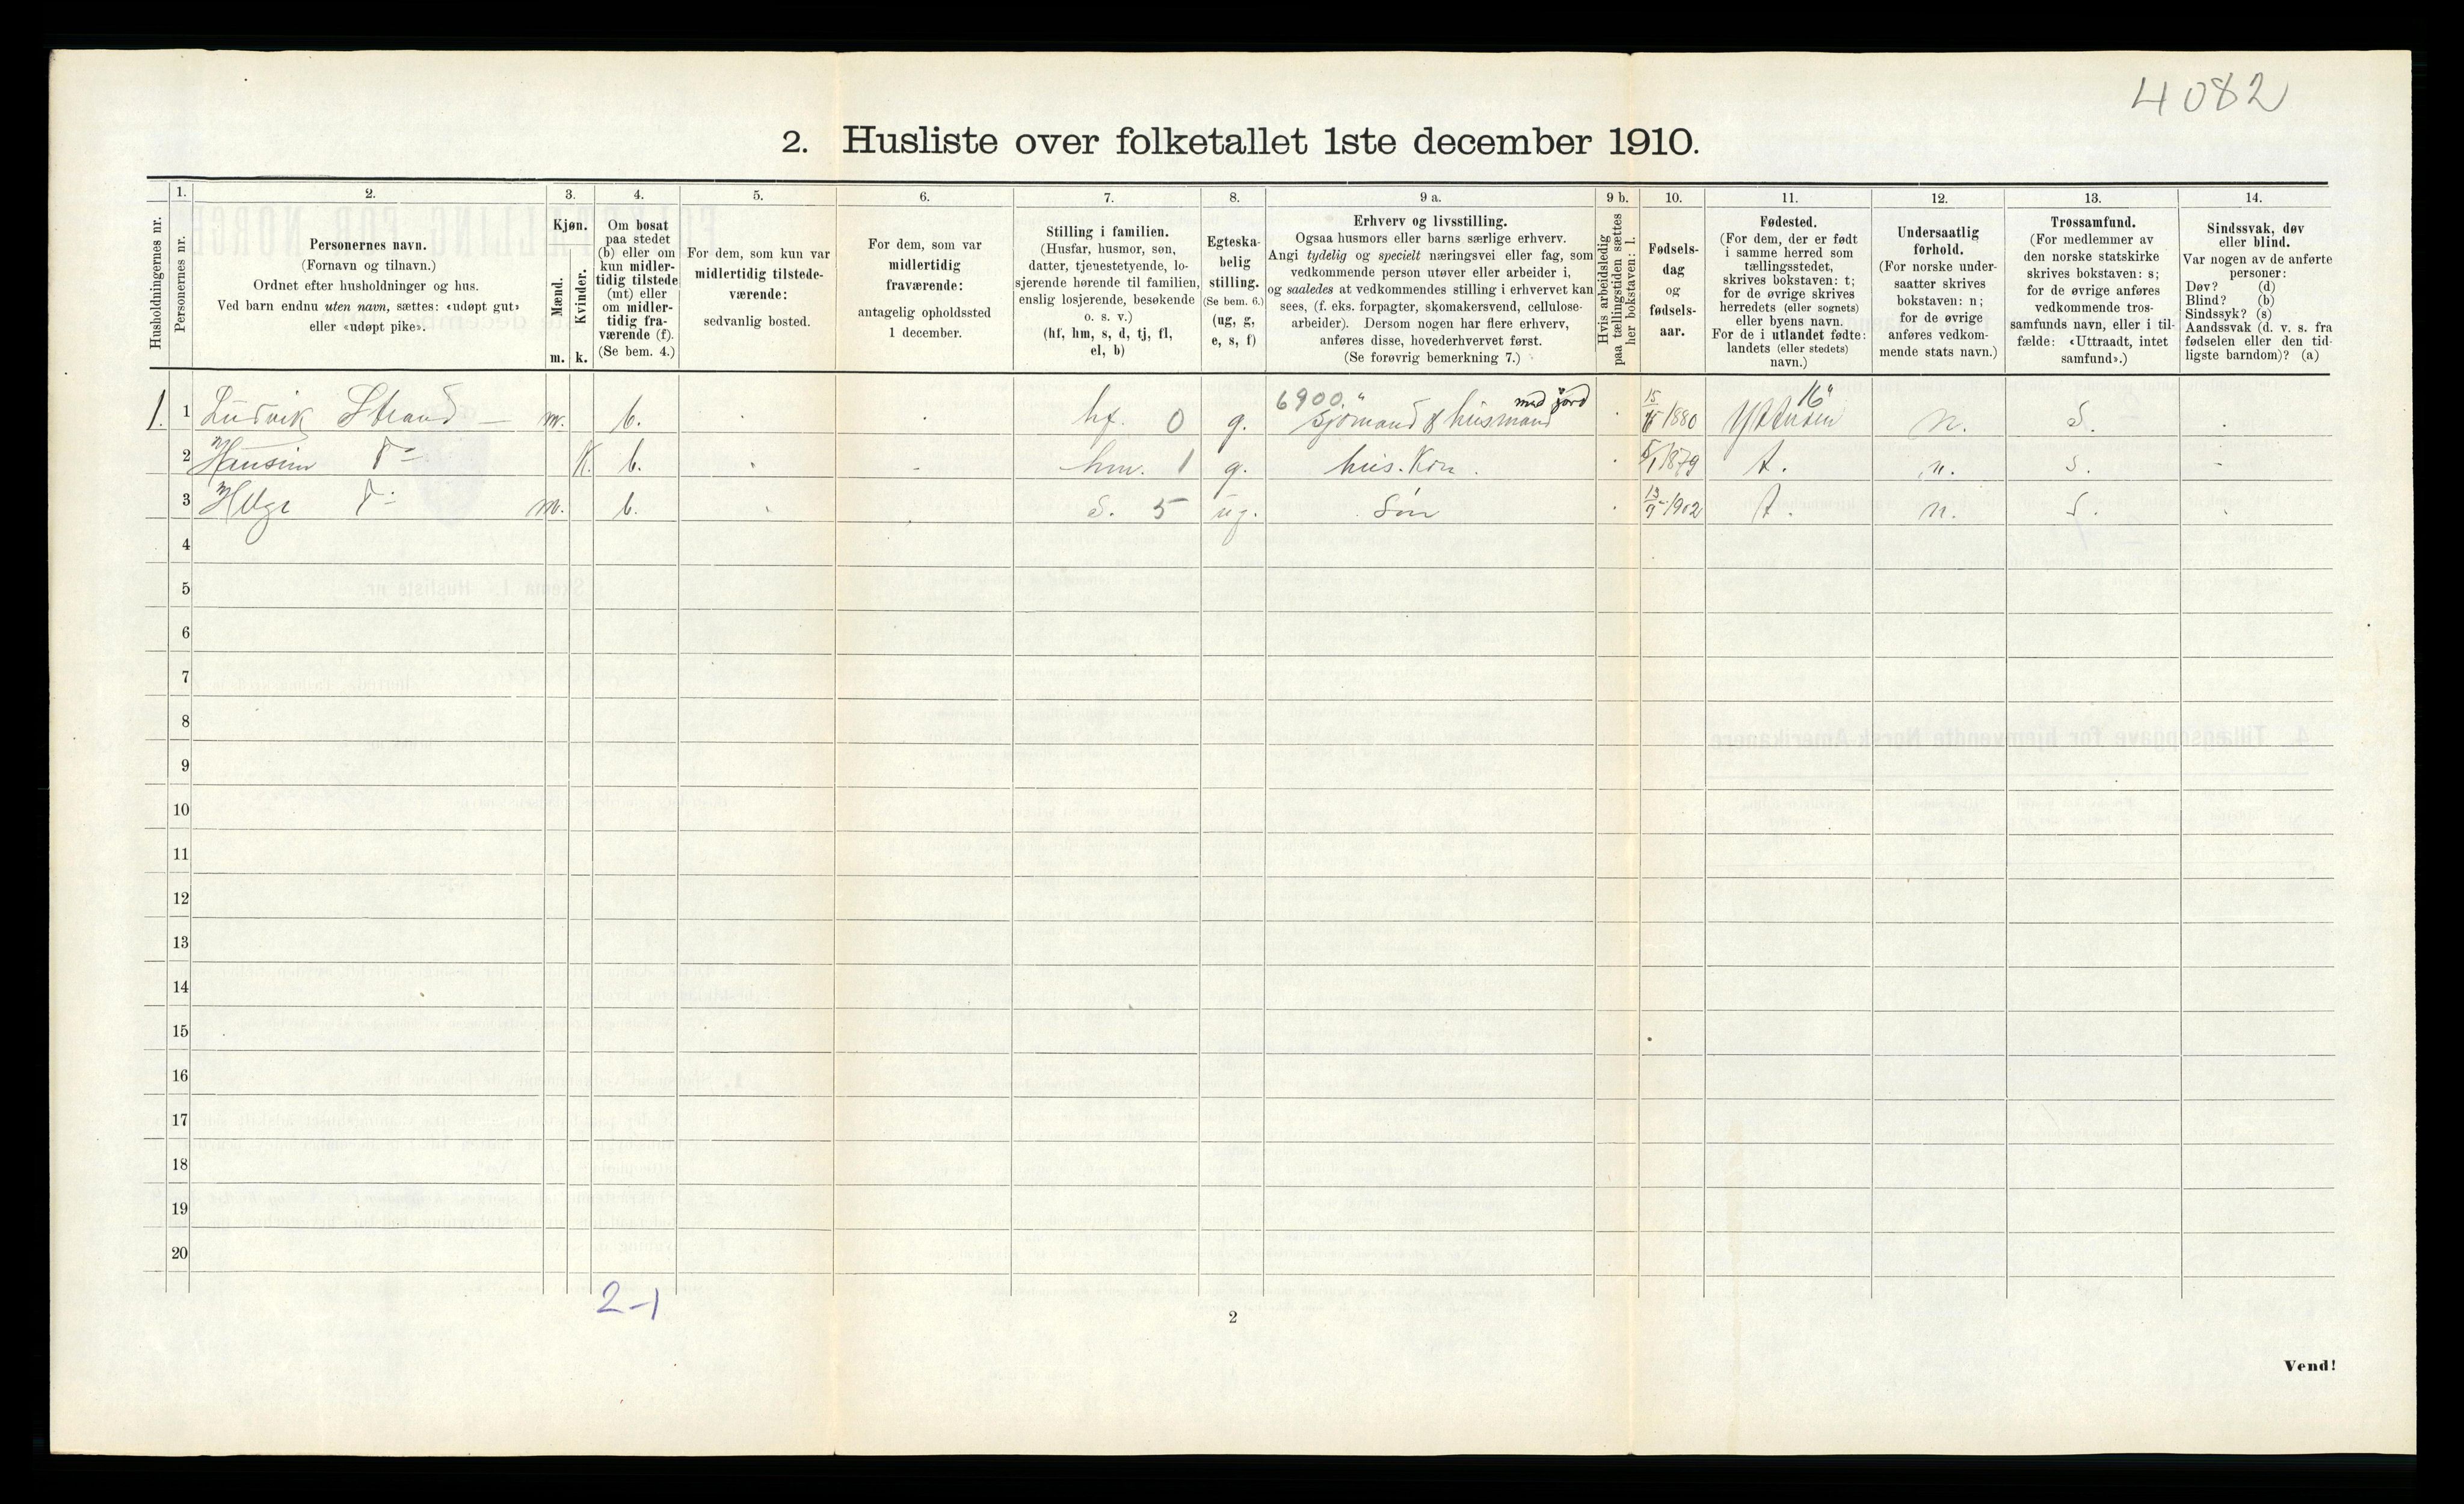 4082
2. Husliste over folketallet 1ste december 1910.
Husholdningernes nr.
1.
Personernes nr.
2.
Personernes navn.
(Fornavn og tilnavn.)
Ordnet efter husholdninger og hus.
Ved barn endnu uten navn, sættes: «udøpt gut»
eller «udøpt pike».
3.
Kjøn.
Mænd.
Kvinder.
m. k.
4.
Om bosat
paa stedet
(b) eller om
kun midler-
tidig tilstede
(mt) eller
om midler-
tidig fra-
værende (f).
(Se bem. 4.)
5.
For dem, som kun var
midlertidig tilstede-
værende:
sedvanlig bosted.
6.
For dem, som var
midlertidig
fraværende:
antagelig opholdssted
1 december.
7.
Stilling i familien.
(Husfar, husmor, søn,
datter, tjenestetyende, lo-
sjerende hørende til familien,
enslig losjerende, besøkende
o. s. v.)
(hf, hm, s, d, tj, fl,
el, b)
8.
Egteska-
belig
stilling.
(Se bem. 6.)
(ug, g,
e, s, f)
9 a.
Erhverv og livsstilling.
Ogsaa husmors eller barns særlige erhverv.
Angi tydelig og specielt næringsvei eller fag, som
vedkommende person utøver eller arbeider i,
og saaledes at vedkommendes stilling i erhvervet kan
sees, (f. eks. forpagter, skomakersvend, cellulose-
arbeider). Dersom nogen har flere erhverv,
anføres disse, hovederhvervet først.
(Se forøvrig bemerkning 7.)
9 b.
Hvis arbeidsledig
paa tællingstiden sættes
her bokstaven: l.
10.
Fødsels-
dag
og
fødsels-
aar.
11.
Fødested.
(For dem, der er født
i samme herred som
tællingsstedet,
skrives bokstaven: t;
for de øvrige skrives
herredets (eller sognets)
eller byens navn.
For de i utlandet fødte:
landets (eller stedets)
navn.)
12.
Undersaatlig
forhold.
(For norske under-
saatter skrives
bokstaven: n;
for de øvrige
anføres vedkom-
mende stats navn.)
13.
Trossamfund.
(For medlemmer av
den norske statskirke
skrives bokstaven: s;
for de øvrige anføres
vedkommende tros-
samfunds navn, eller i til-
fælde: «Uttraadt, intet
samfund».)
14.
Sindssvak, døv
eller blind.
Var nogen av de anførte
personer:
Døv? (d)
Blind? (b)
Sindssyk? (s)
Aandssvak (d. v. s. fra
fødselen eller den tid-
ligste barndom)? (a)
6900." med jord 16"
1. 1 Ludvik Strand — m. b. hf. 0 g. Sjømand & husmand 1880 n. S.
2 Hansine Do K. b. hm. 1 g. hus. Kon. 1879 t. n. s.
3 Helge Do m. b. S. 5 ug. Søn 13/9 1902 t. n. S.
4
5
6
7
8
9
10
11
12
13
14
15
16
17
18
19
20
2-1
2
Vend!